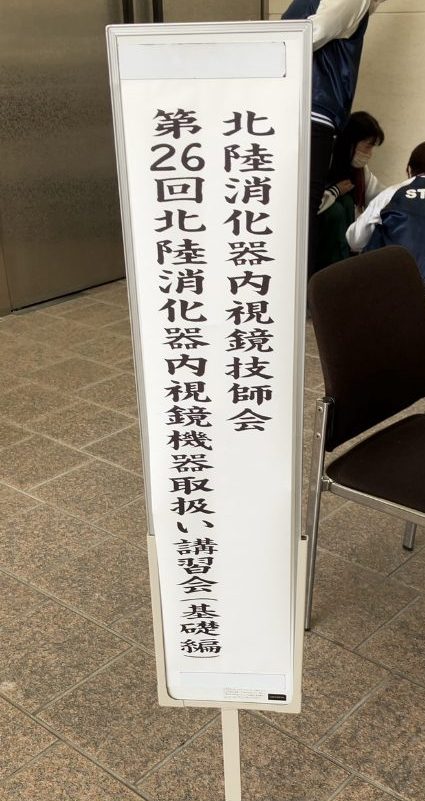 北陸消化器内視鏡技師会
第26回北陸消化器内視鏡機器取扱い講習会(基礎編)
ST